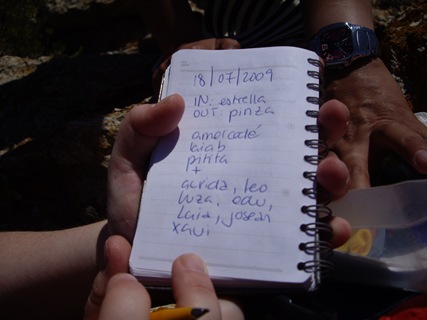 18/07/2009
IN: estrella
OUT: pinza
amorcodé
laiab
pitita
+
auridz, leo
luza, edu,
Laia, josean
xavi